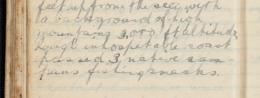 feet up from the sea, with
a background of high
mountains 3,000 ft altitude
rough inhospitable coast
passed 3 native sam-
pans fishing smacks.